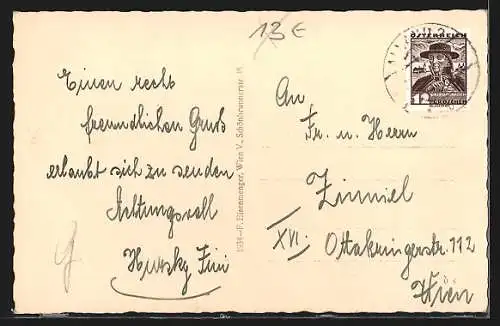 13 €
ÖSTERREICH
12 GROSCHEN
Einen recht
freundlichen Gruß
erlaubt sich zu senden
Achtungsvoll
Hursky Fini
1934—F. Eisenmenger, Wien V., Schönbrunnerstr.
An
Fr. u. Herrn
Zimmel
XVI. Ottakringerstr. 112
Wien